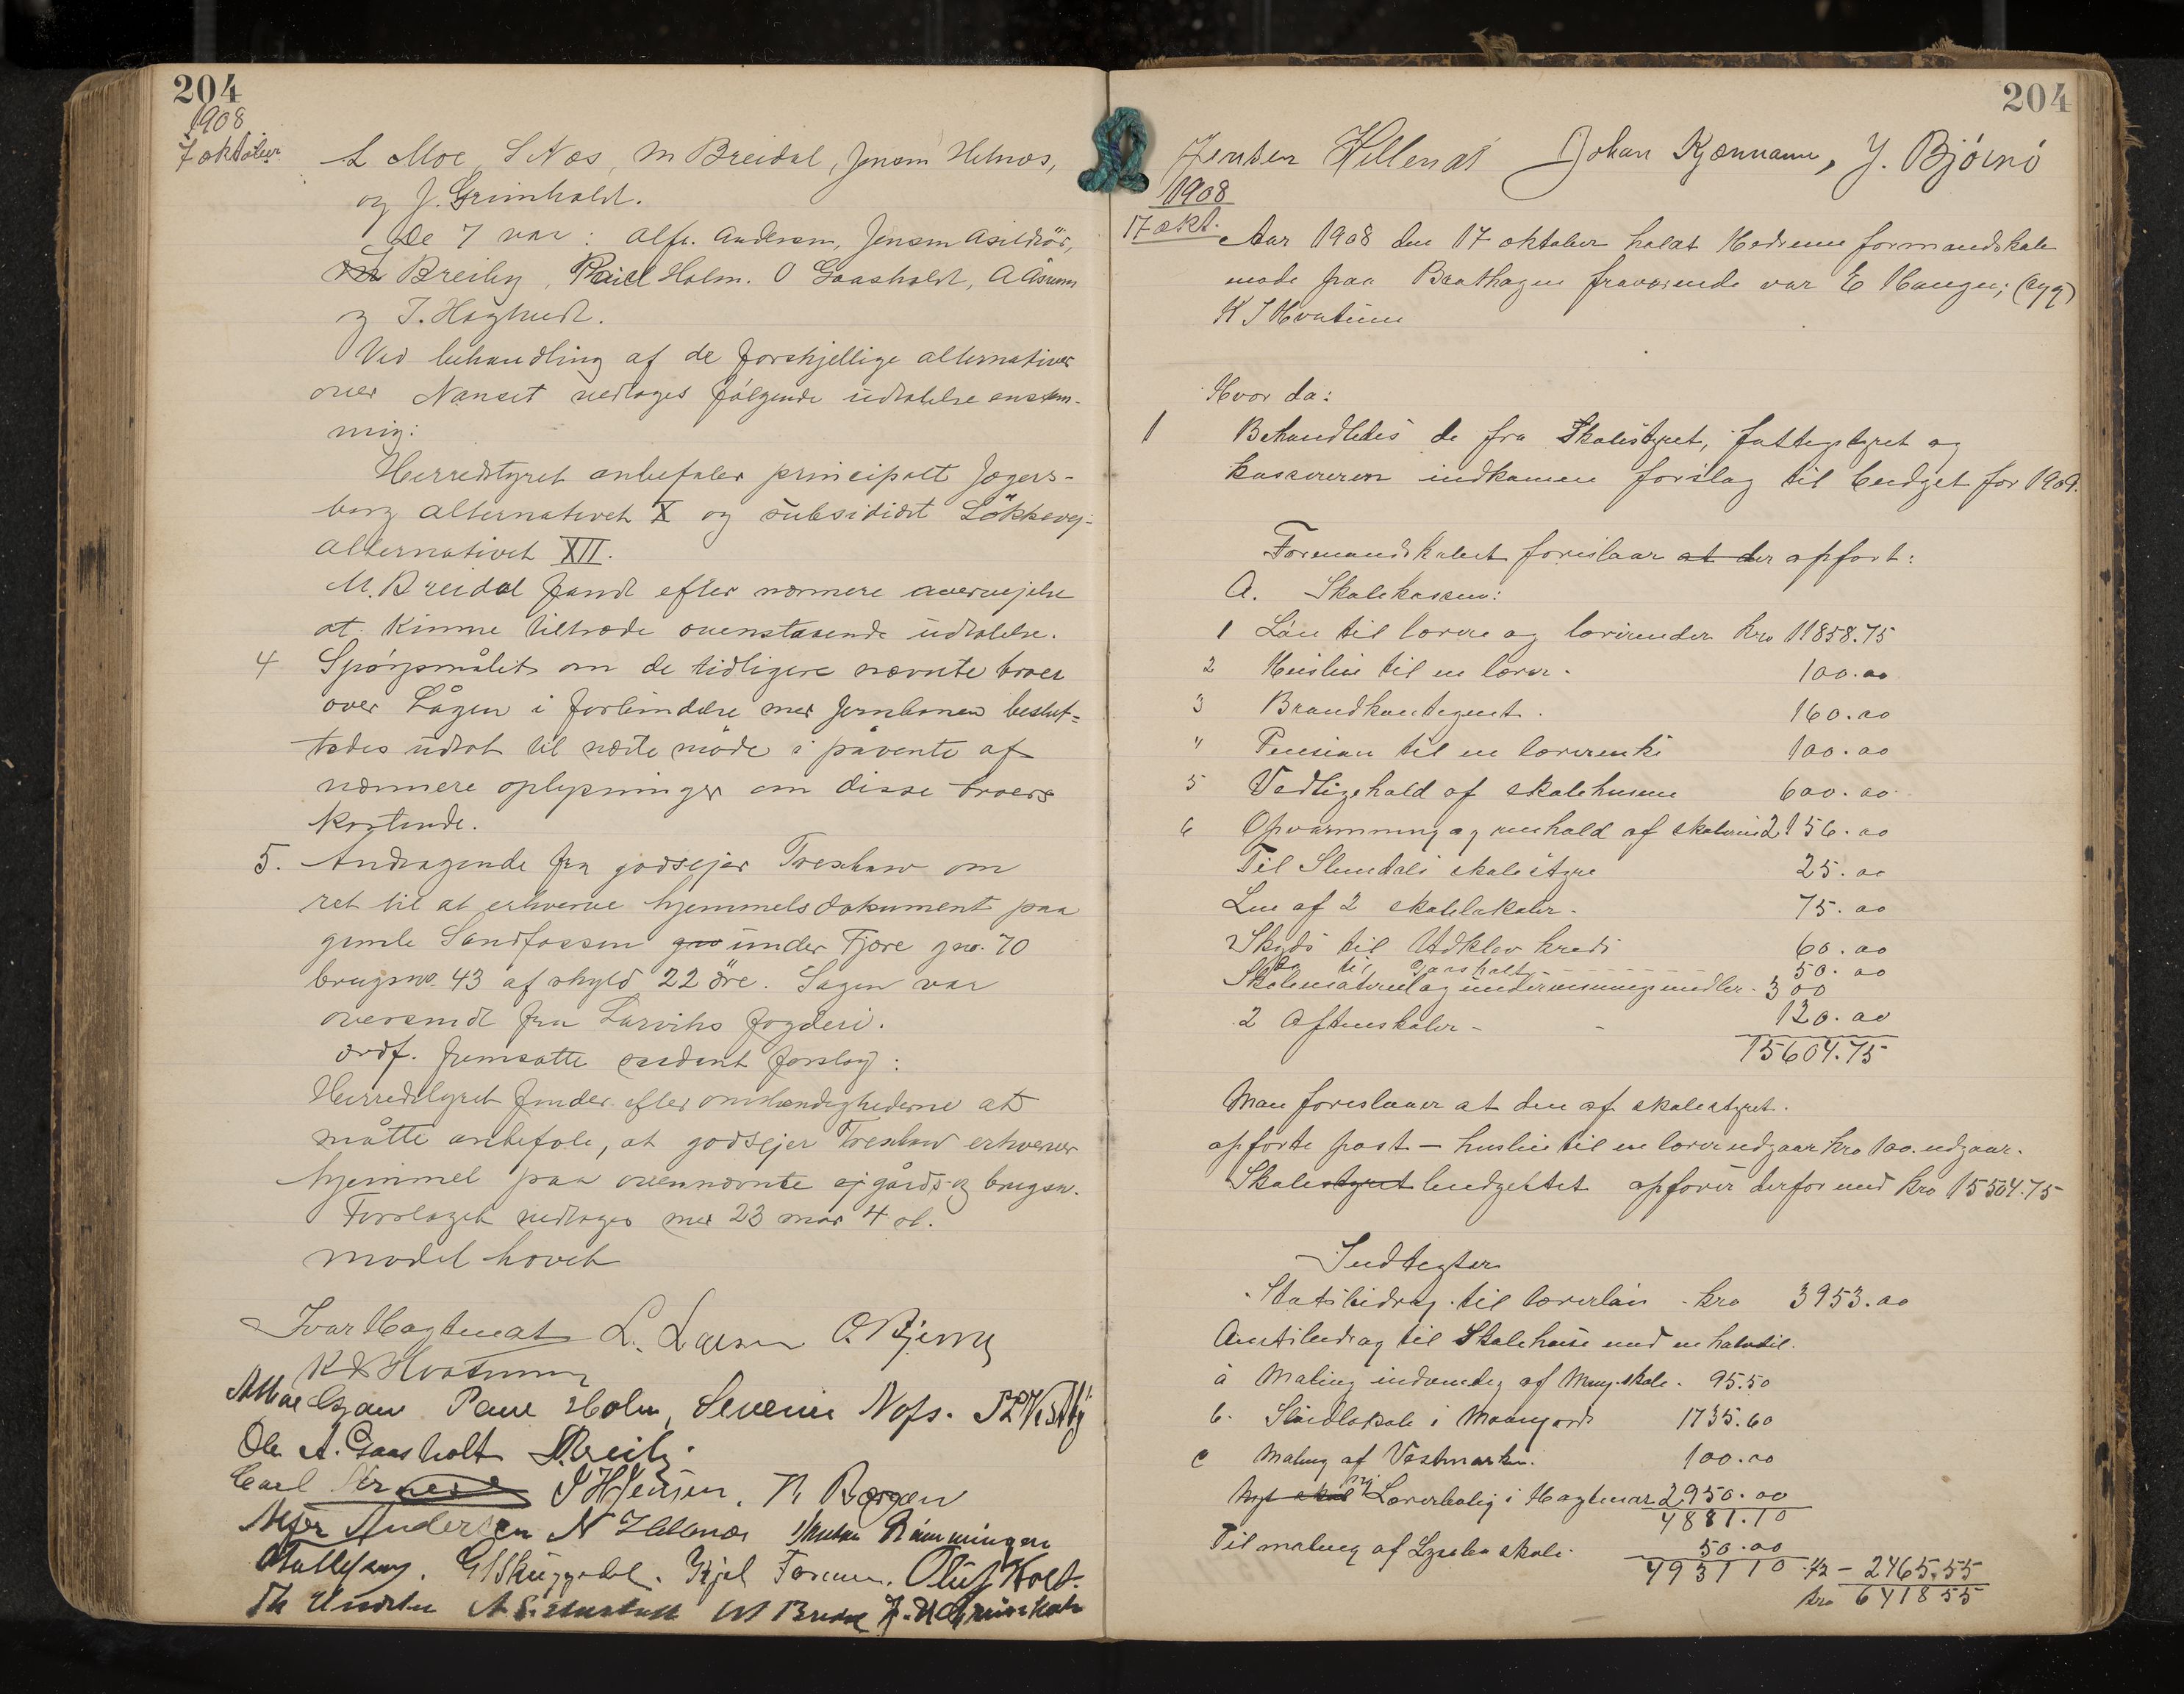 204
1908
7 oktober
L Moe, S Næs, M Breidal, Jensm Helnæs,
og J. Grimholdt.
De 7 var: Alfr. Andersen, Jensm Asildrör,
Breiby, Paul Holm. O Gaasholdt, A Åsrum
og I. Hagtvedt.
Ved behandling af de forskjellige alternativer
over Nanset vedtoges følgende udtalelse enstem-
mig:
Herredstyret anbefaler principalt Jegers-
borg alternativet X og subsidiært Lökkevej-
alternativet XII.
M. Breidal fandt efter nærmere overvejelse
at kunne tiltræde ovenstaaende udtalelse.
4 Spörgsmålet om de tidligere nævnte broer
over Lågen i forbindelse med jernbanen beslut-
tedes udsat til næste möde i påvente af
nærmere oplysninger om disse broers
kostende.
5. Andragende fra godsejer Treschow om
ret til at erhverve hjemmelsdokument paa
gamle Sandfossen gno under Fjære gno. 70
brugsno. 43 af skyld 22 öre. Sagen var
oversendt fra Larviks fogderi.
Ordf. fremsatte saadant forslag:
Herredstyret finder efter omstændighederne at
måtte anbefale, at godsejer Treschow erhverver
hjemmel paa ovennævnte gårds- og brugsn.
Forslaget vedtoges med 23 mod 4 st.
mødet hævet
Ivar Hagtvedt L. Larsen O. Bjerva
K S Hvatum
A Moe Paul Holm, Severin Næss.
Ole A. Gaasholt S. Breiby.
Carl J H Jensen. N. Bergan
Alfr Andersen N Helnæs
G Skuggedal. Kjel Olüf Holt.
M Breidal J. H Grimholt
204
Jensen Johan Kjønnamo, J. Bjørnö
1908
17 okt.
Aar 1908 den 17 oktober holdt Hedrum formandskab
møde paa Braathagen fraværende var E Haugen; (syg)
K S Hvatum
Hvor da:
1 Behandledes de fra Skolestyret, fattigstyret og
kassereren indkomne forslag til budget for 1909.
Formandskabet foreslaar at der opført:
A. Skolekassen:
1 Lön til lærere og lærerinder kro 11858.75
2 Huslie til en lærer - 100.00
3 Brandkontingent. 160.00
" Pension til en lærerenke 100.00
5 Vedligehold af skolehusene 600.00
6 Opvarmning og renhold af skolerne 2156.00
Til Slemdals skolestyre 25.00
Leie af 2 skolelokaler. 75.00
Skyds til Odklev kreds 60.00
Do til Gaasholt - - - - - 50.00
Skolemateriel og undervisningsmidler - 300
2 Aftenskoler - - 120.00
15604.75
Man foreslaaer at den af skolestyret.
opførte post - huslie til en lærer udgaar kro 100. udgaar.
Skolestyret budgettet opføres derfor med kro 15504.75
Indtegter
Statsbidrag til lærerlön - kro 3953.00
Amtsbidrag til Skolehuse
a Maling indvendig af Mangskole. 95.50
b. Slöidlokale i Moangaards 1735.60
c Maling af Vestmarken. 100.00
Nyt skol ny Lærerbolig i Hagtvedt 2950.00
4881.10
Til maling af skole. 50.00
4931 10 ½ - 2465.55
kro 6418 55